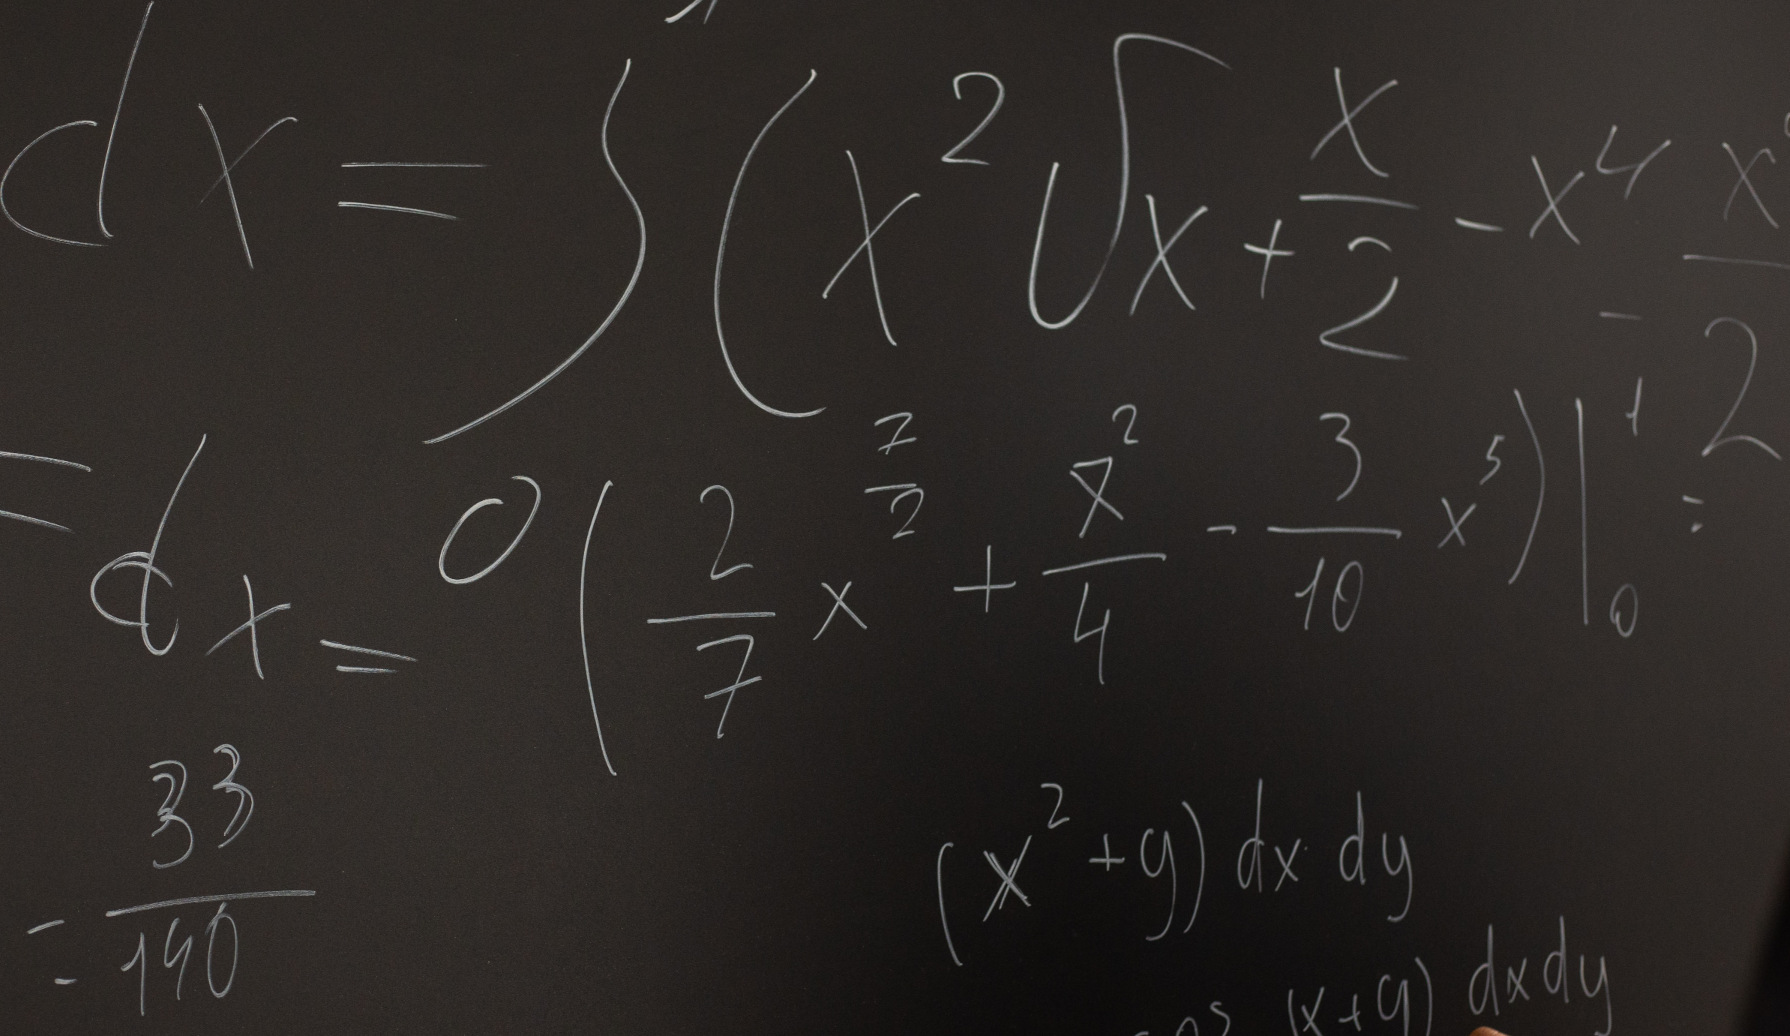 dx = ∫ (x² √x + x/2 - x⁴ - x/2
= dx = 0 (2/7 x^(7/2) + x²/4 - 3/10 x⁵) |₀¹ =
= 33/140
(x² + y) dx dy
cos (x+y) dx dy